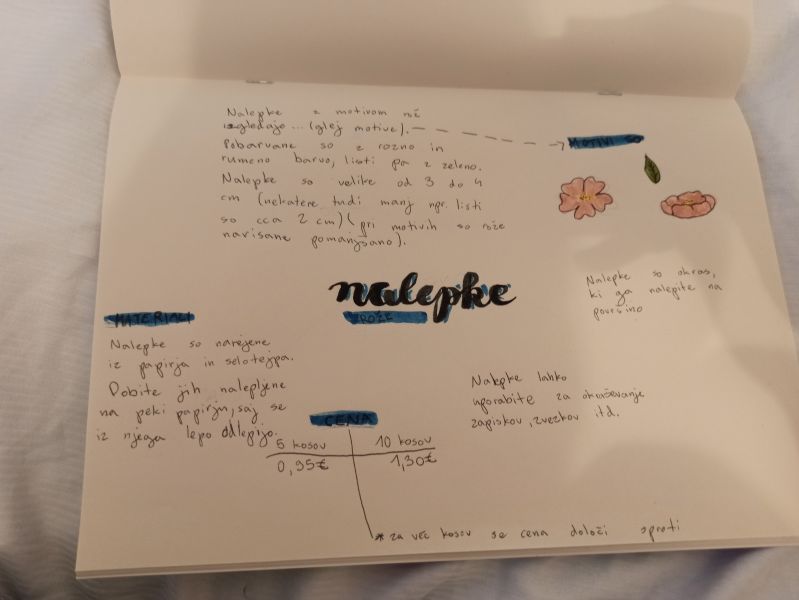 Nalepke z motivom rož
izgledajo... (glej motive).
Pobarvane so z rozno in
rumeno barvo, listi pa z zeleno.
Nalepke so velike od 3 do 4
cm (nekatere tudi manj npr. listi
so cca 2 cm) (pri motivih so rože
narisane pomanjšano).
MOTIVI SO
nalepke
ROŽE
Nalepke so okras,
ki ga nalepite na
površino
MATERIALI
Nalepke so narejene
iz papirja in selotejpa.
Dobite jih nalepljene
na peki papirju, saj se
iz njega lepo odlepijo.
Nalepke lahko
uporabite za okraševanje
zapiskov, zvezkov itd.
CENA
5 kosov 10 kosov
0,95€ 1,30€
* za več kosov se cena določi sproti